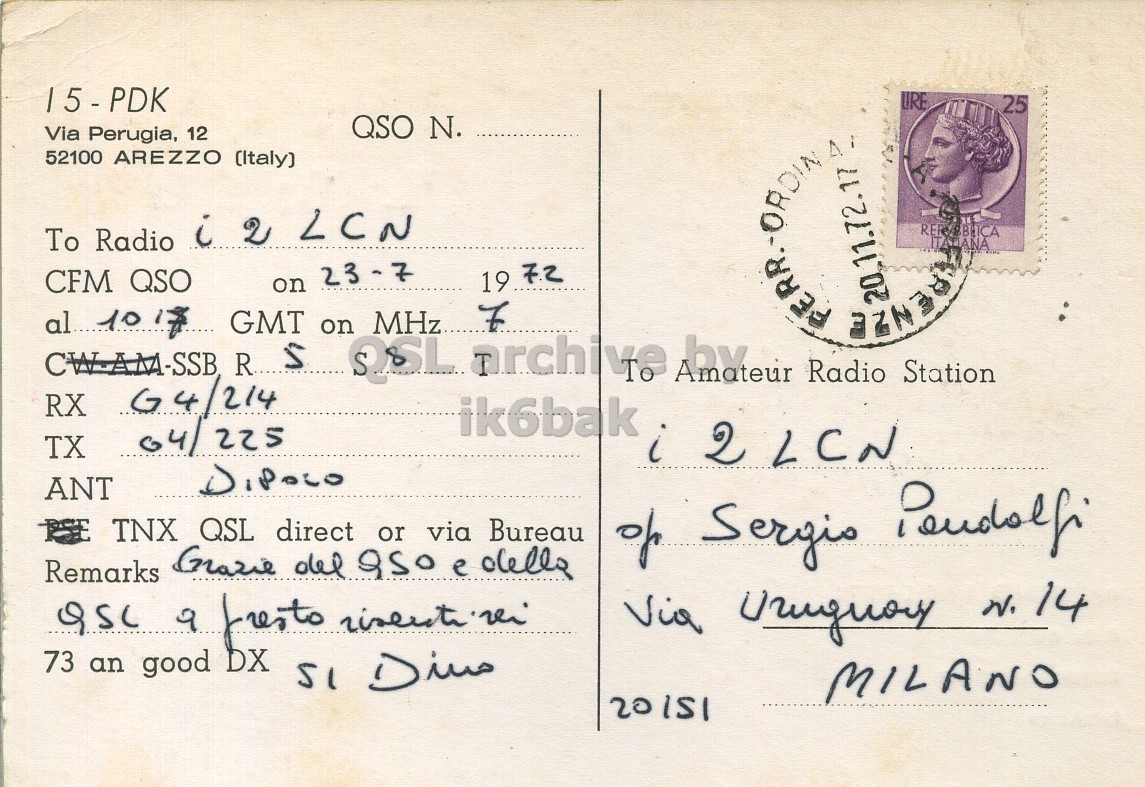 I 5 - PDK
Via Perugia, 12
52100 AREZZO (Italy)
QSO N.
To Radio i 2 LCN
CFM QSO on 23-7 1972
al 1017 GMT on MHz 7
CW-AM-SSB R 5 S 8 T
RX G4/214
TX G4/225
ANT DIPOLO
PSE TNX QSL direct or via Bureau
Remarks Grazie del QSO e della
QSL a presto risentirci
73 an good DX 51 Dino
LIRE 25
REPUBBLICA
ITALIANA
FIRENZE FERR.-ORDINA
20.11.72.17
To Amateur Radio Station
i 2 LCN
op Sergio Pandolfi
Via Uruguay N. 14
20151 MILANO
QSL archive by
ik6bak